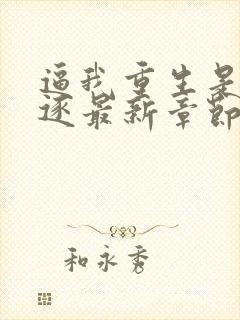 逼我重生是
逐最新章节
和永秀